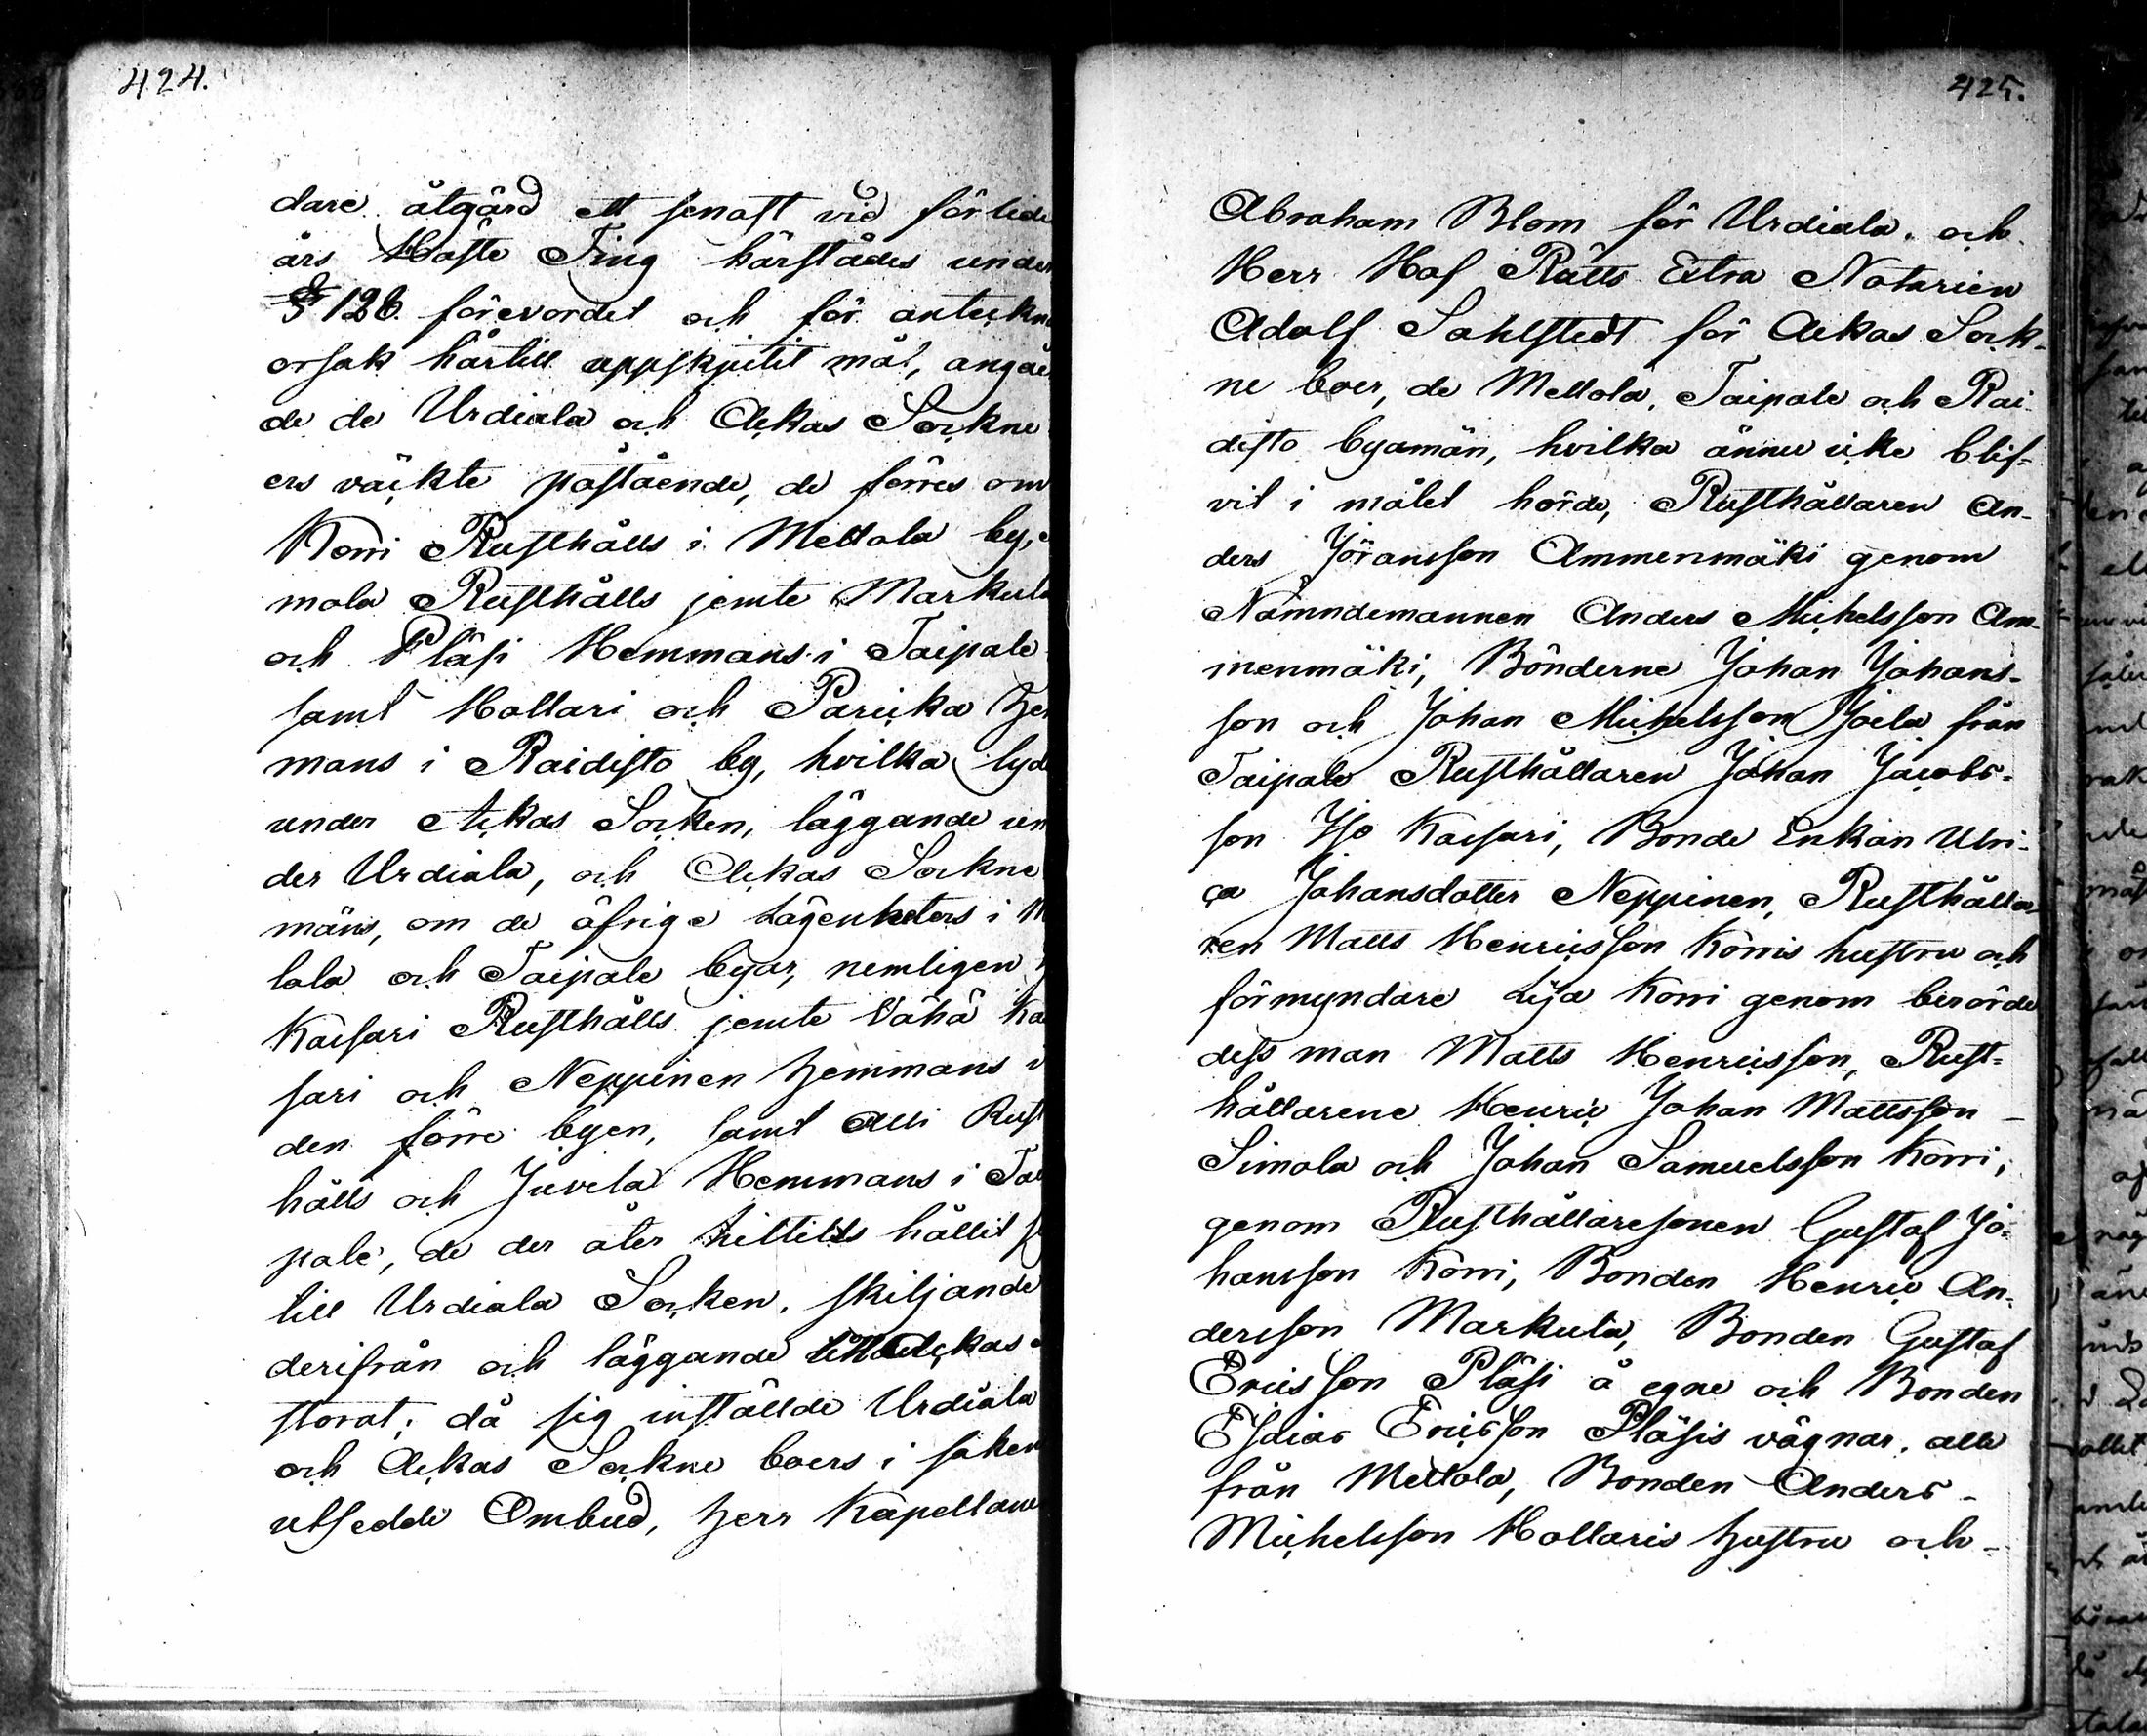 424.
dare åtgärd ett senast vid förlide
års Höste Ting härstädes under
§ 126. förevordet och för anteckn
orsak härtill uppskjutit mål, angåe
de de Urdiala och Ackas Sockne
ers väckte påstående, de förres om
Körri Rusthålls i Mettola by,
mola Rusthålls jemte Markula
och Pläsi Hemmans i Taipale
samt Hollari och Paricka Hem
mans i Raidisto by, hvilka lyd
under Ackas Socken, läggande un
der Urdiala, och Ackas Sockne
mäns, om de öfrige Lägenheters i M
lola och Taipale byar, nemligen
Kaisari Rusthålls jemte Vähä Kai
sari och Neppinen Hemmans i
den förre byen, samt Alli Rust
hålls och Juvela Hemmans i Tai
pale, de der åter hittills hållit s
till Urdiala Socken, skiljande
derifrån och läggande till Ackas
storat; då sig inställde Urdiala
och Ackas Sockne boers i saken
utsedde Ombud, Herr Kapellanen
425.
Abraham Blom för Urdiala, och
Herr Hof Rätts Extra Notarien
Adolf Sahlstedt för Ackas Sock-
ne boer, de Mettola, Taipale och Rai-
disto byamän, hvilka ännu icke blif-
vit i målet hörde, Rusthållaren An-
ders Jöransson Ammenmäki genom
Nämndemannen Anders Michelsson Am-
menmäki, Bönderne Johan Johans-
son och Johan Michelsson Joela från
Taipale Rusthållaren Johan Jacobs-
son Iso Kaisari, Bonde Enkan Ulri-
ca Johansdotter Neppinen, Rusthålla-
ren Matts Henricsson Körris hustru och
förmyndare Lisa Körri genom berörde
dess man Matts Henricsson, Rust-
hållarene Henric Johan Mattsson
Simola och Johan Samuelsson Körri,
genom Rusthållaresonen Gustaf Jo-
hansson Körri, Bonden Henric An-
dersson Markula, Bonden Gustaf
Ericsson Pläsi å egne och Bonden
Esaias Ericsson Pläsis vägnar, alle
från Mettola, Bonden Anders
Michelsson Hollaris Hustru och